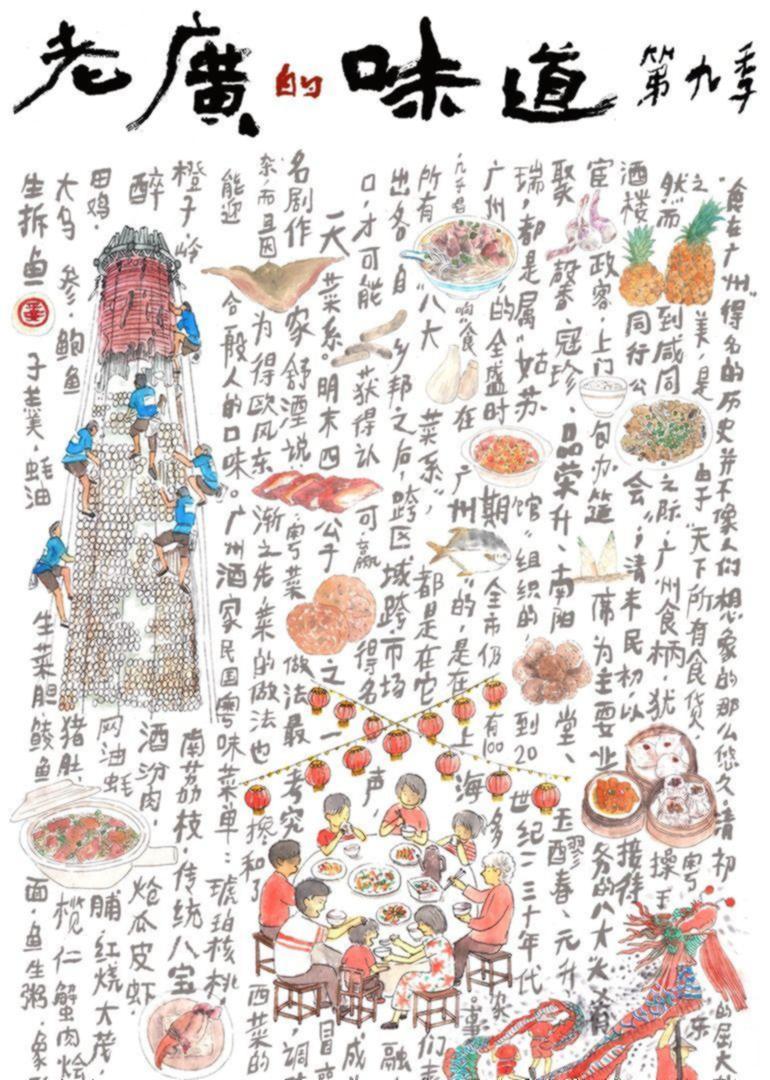 老廣的味道 第九季
“食在广州”得名的历史并不像人们想象的那么悠久，清初的屈大
之美，是由于“天下所有食货，粤东
然而到咸同之际，广州食柄，犹操
酒楼同行公会”，清末民初，以接待
宦政客，上门包办筵席为主要业务的八大“大肴
聚馨、冠珍、品荣升、南阳堂、玉醪春、元升、
瑞，都是属“姑苏馆”组织的，到20世纪二三十年代
广州的全盛时期全市仍有100多家
响“食在广州的，是在上海。事
所有“八大菜系”，都是在它们
出各自乡邦之后，跨区域跨市场融
口，才可能获得认可，赢得名声，成
一大菜系。明末四公子之一冒
名剧作家舒湮说：粤菜做法最考究调
杂，而且因为得欧风东渐之先，菜的做法也掺和了西菜的
能迎合一般人的口味。广州酒家民国粤味菜单：琥珀核桃，
橙子，岭南荔枝，传统八宝
醉酒汾肉，炝瓜皮虾，
田鸡，网油蚝脯，红烧大茂，
大乌参，鲍鱼猪肚，榄仁蟹肉烩
生拆鱼子羹，蚝油生菜胆，鲮鱼面，鱼生粥，象